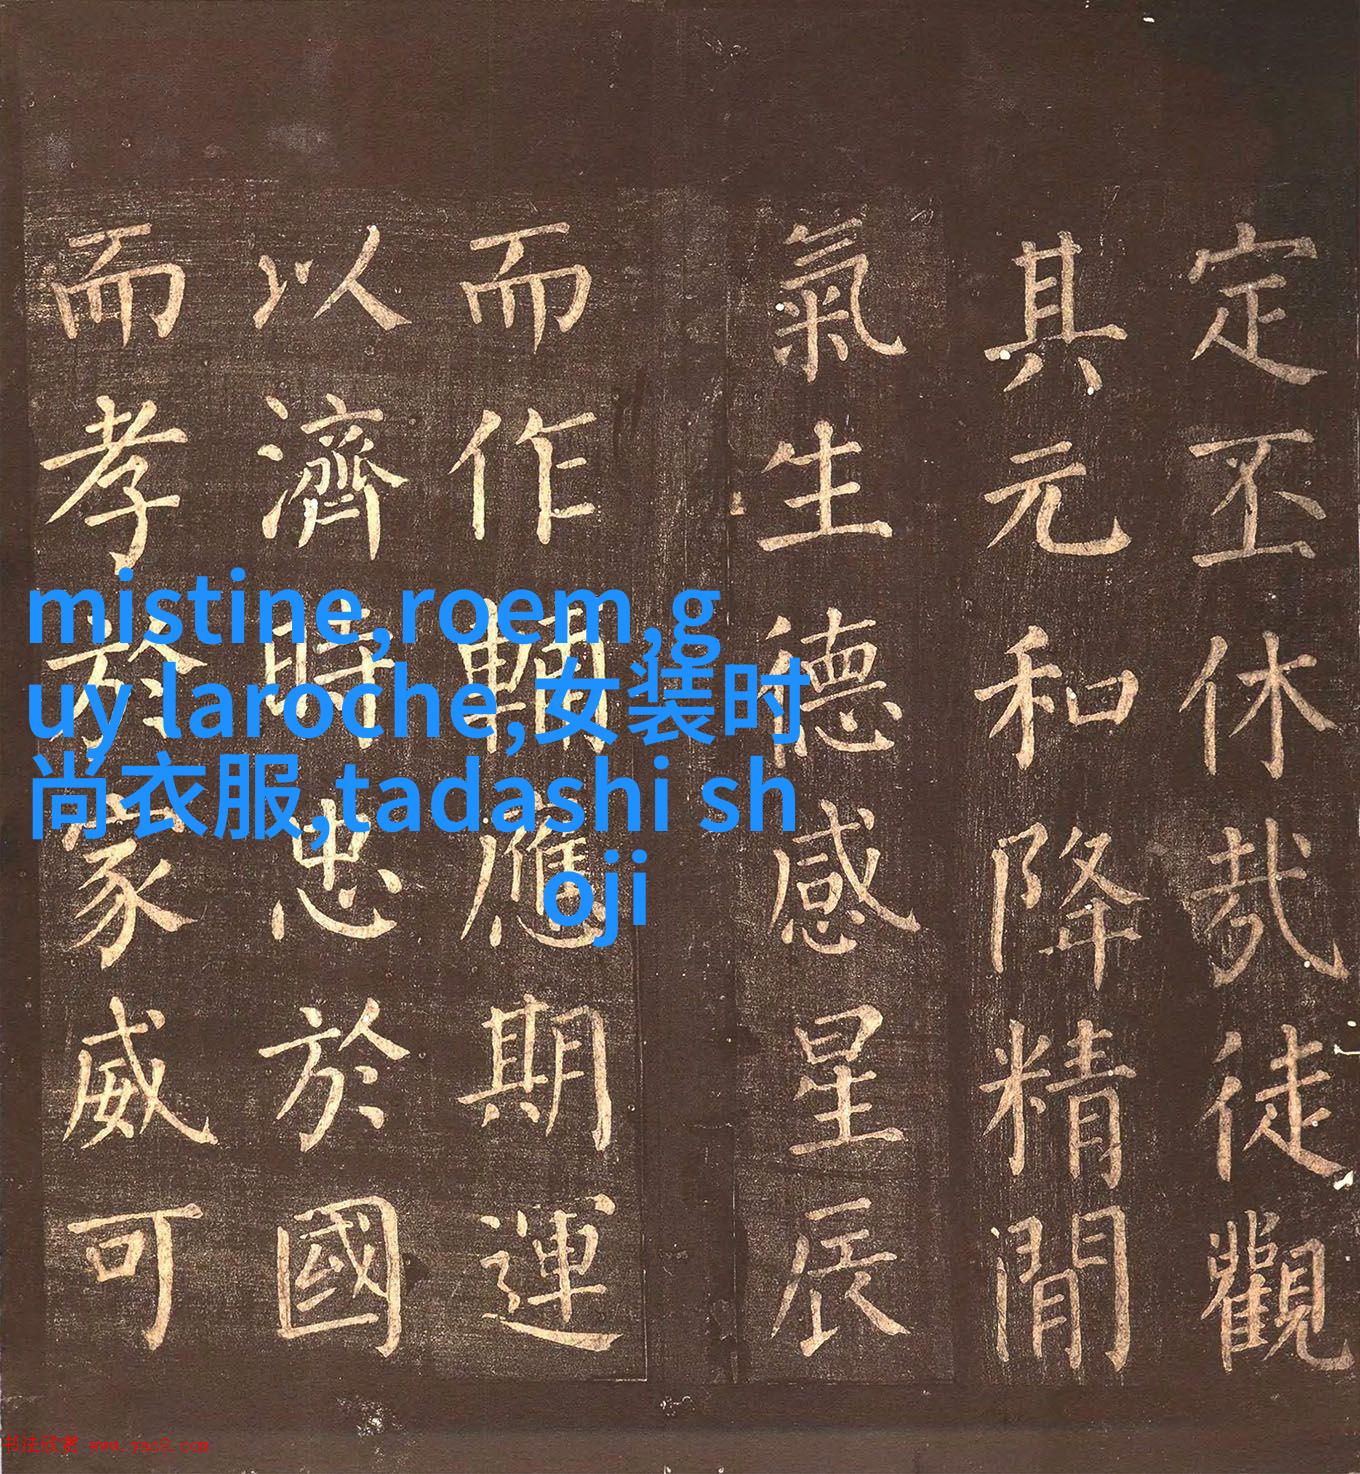 定丕休哉徒觀
其元和降精閒
氣生德感星辰
而作輔應期運
以濟時忠於國
而孝於家威可
mistine,roem,g
uy laroche,女装时
尚衣服,tadashi sh
oji
书法欣赏 www.yac8.com